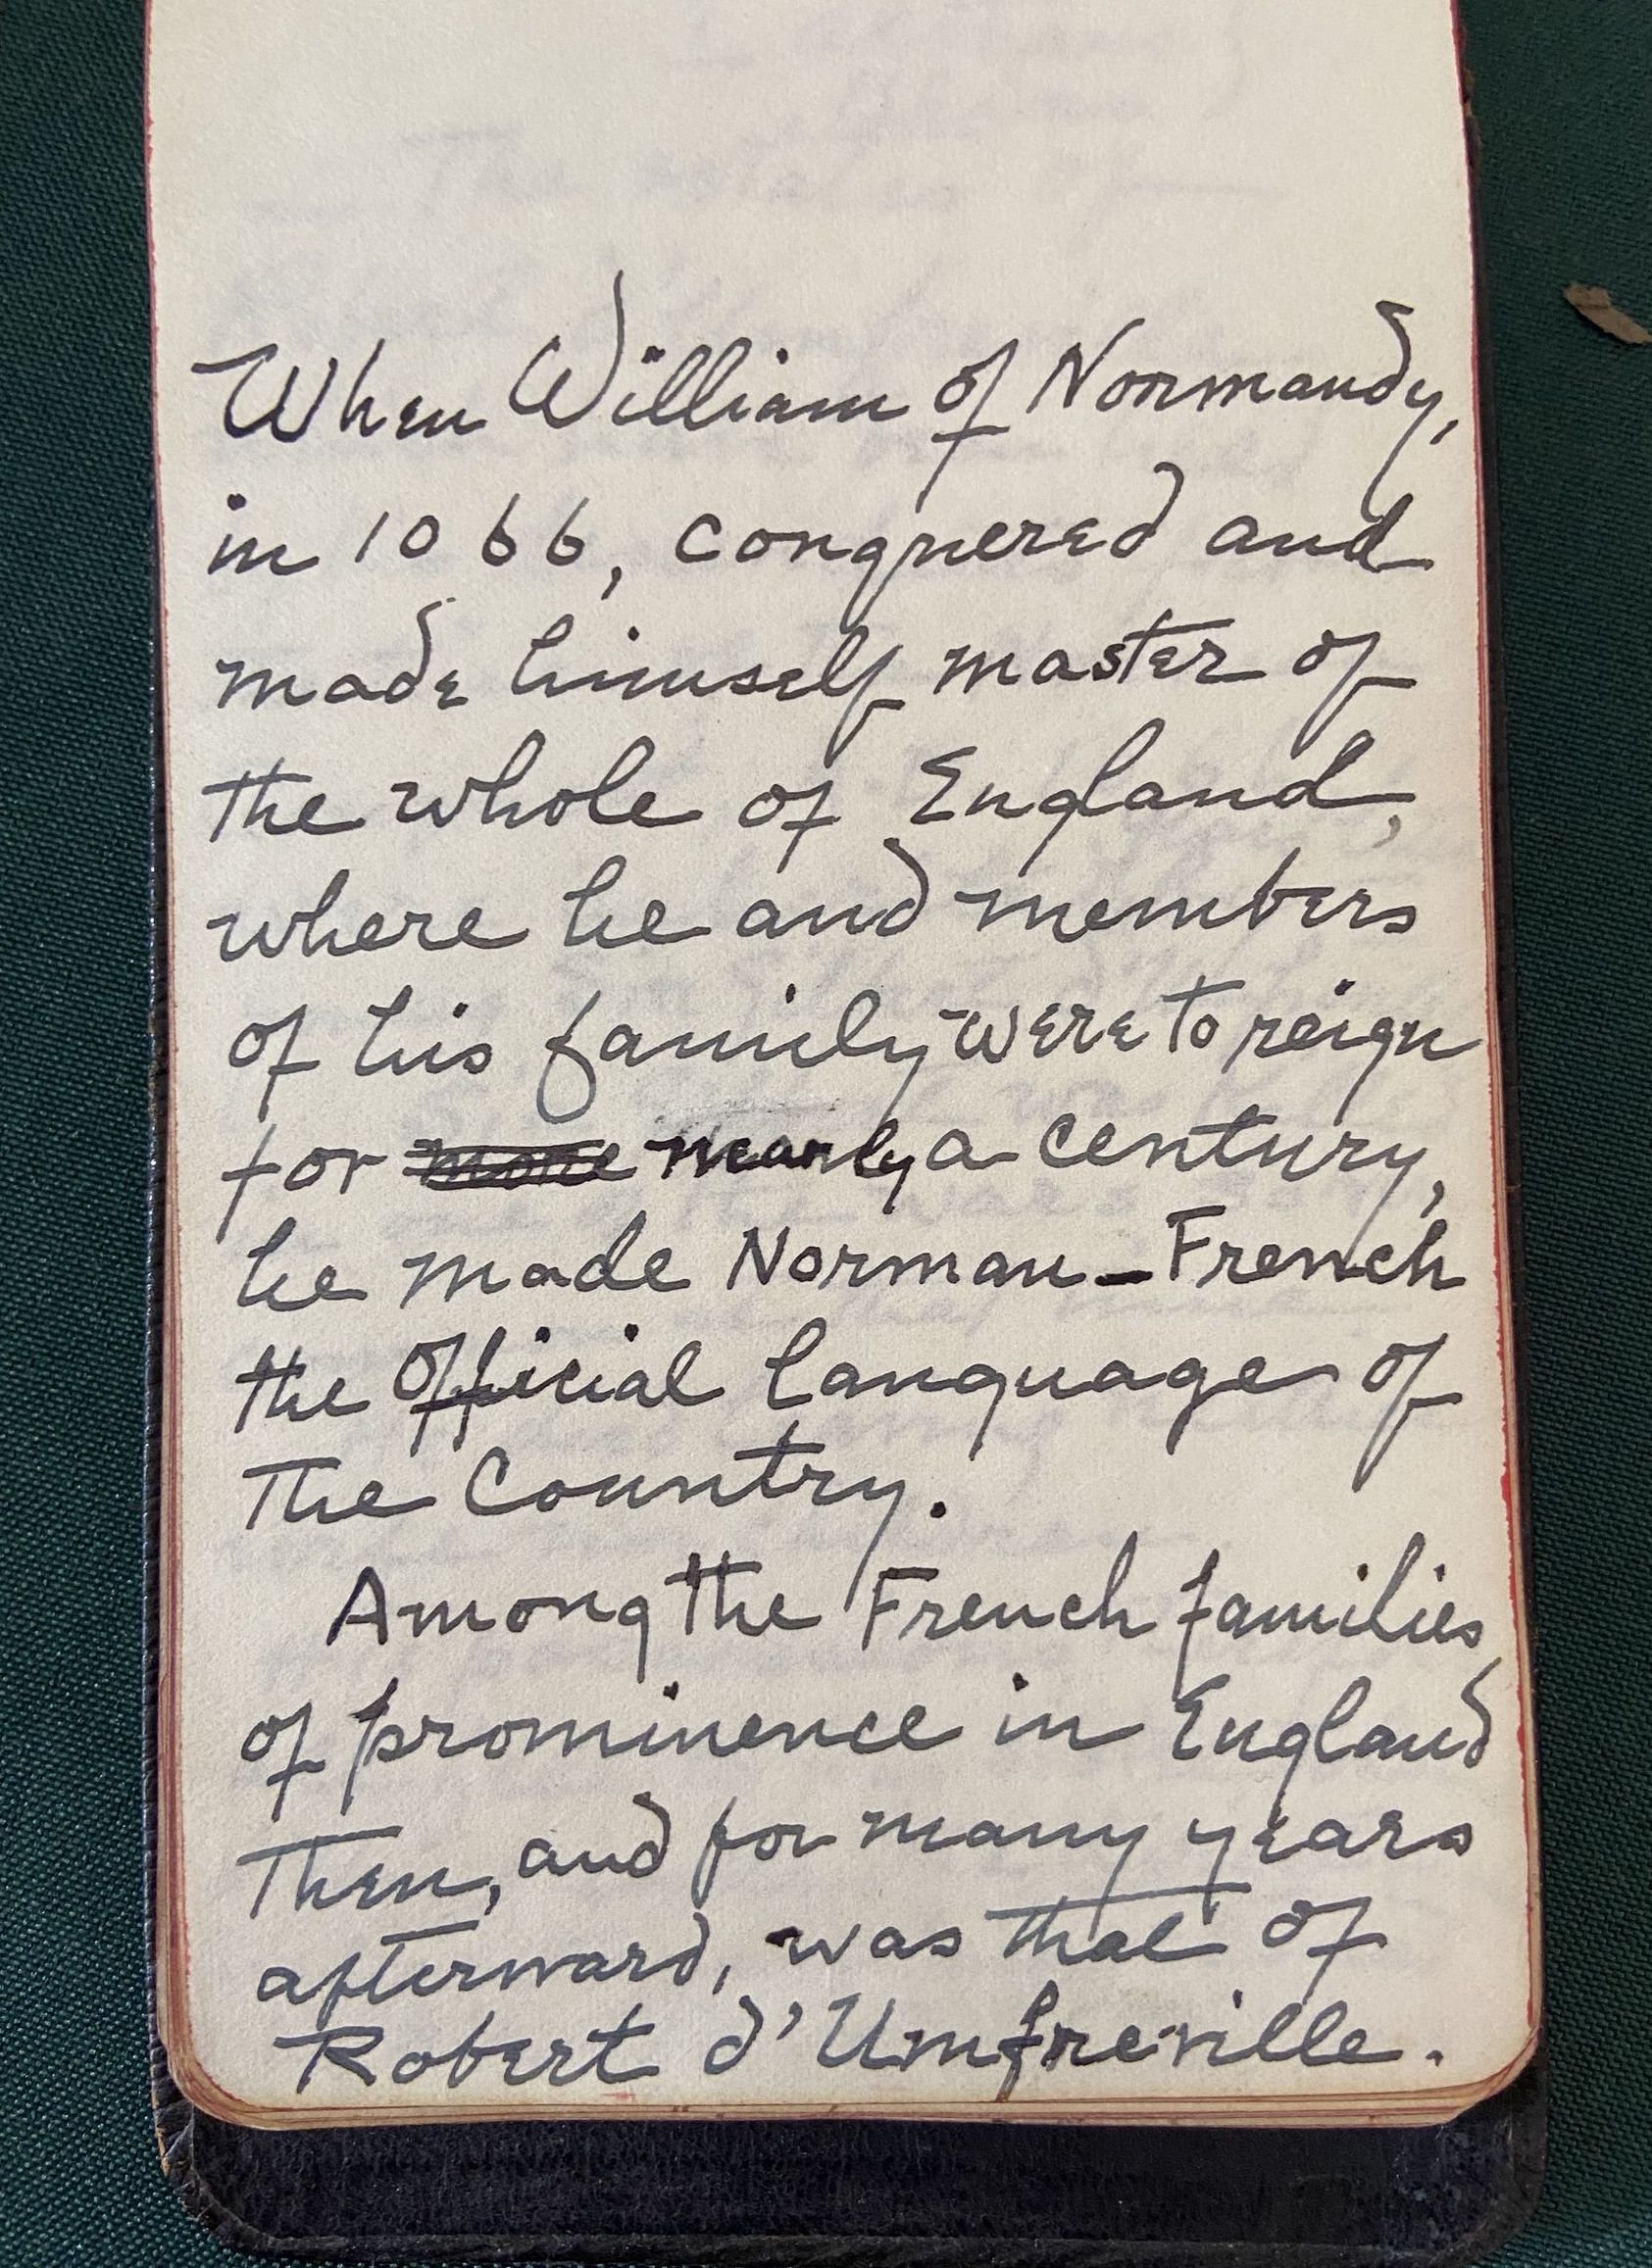 When William of Normandy,
in 1066, conquered and
made himself master of
the whole of England,
where he and members
of his family were to reign
for more nearly a century,
he made Norman-French
the Official language of
The Country.
Among the French families,
of prominence in England
Then, and for many years
afterward, was that of
Robert d'Umfreville.